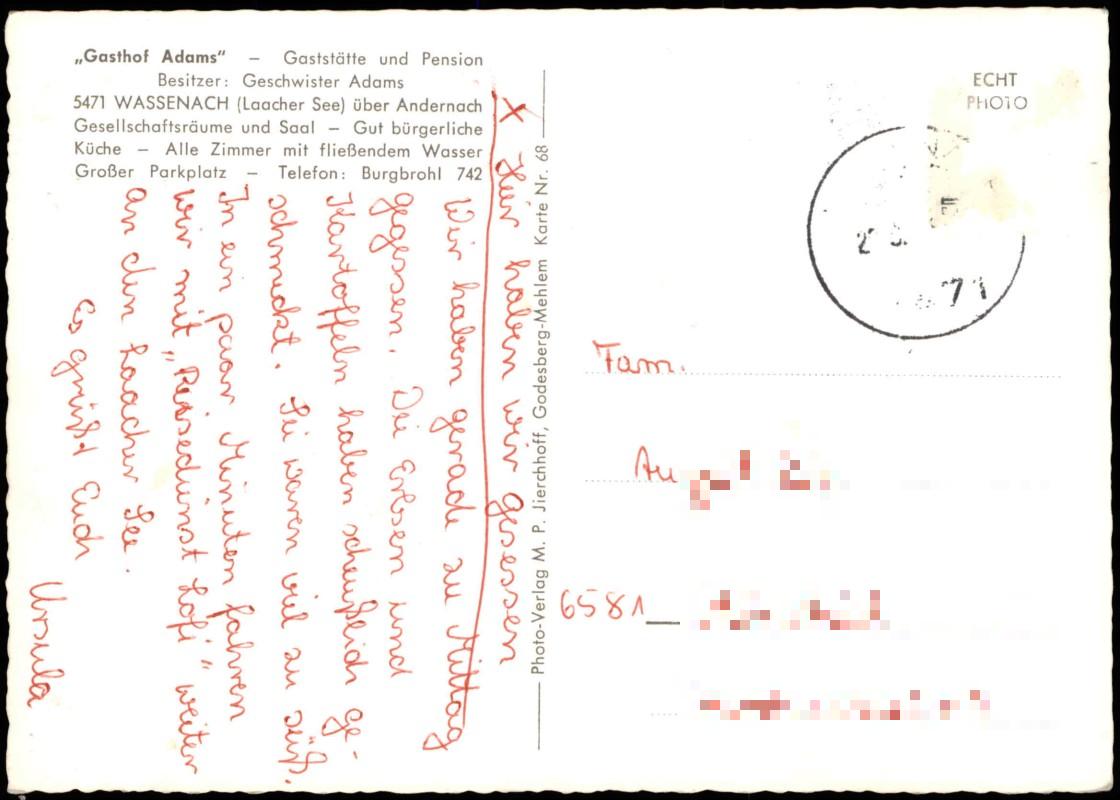 „Gasthof Adams" – Gaststätte und Pension
Besitzer: Geschwister Adams
5471 WASSENACH (Laacher See) über Andernach
Gesellschaftsräume und Saal – Gut bürgerliche
Küche – Alle Zimmer mit fließendem Wasser
Großer Parkplatz – Telefon: Burgbrohl 742
X Hier haben wir gesessen
Wir haben gerade zu Mittag
gegessen. Die Erbsen und
Kartoffeln haben scheußlich ge-
schmeckt. Sie waren viel zu süß.
In ein paar Minuten fahren
wir mit „Reisedienst Lofi" weiter
an den Laacher See.
Es grüßt Euch
Ursula
Photo-Verlag M. P. Jierchhoff, Godesberg-Mehlem Karte Nr. 68
ECHT
PHOTO
71
Fam.
6581